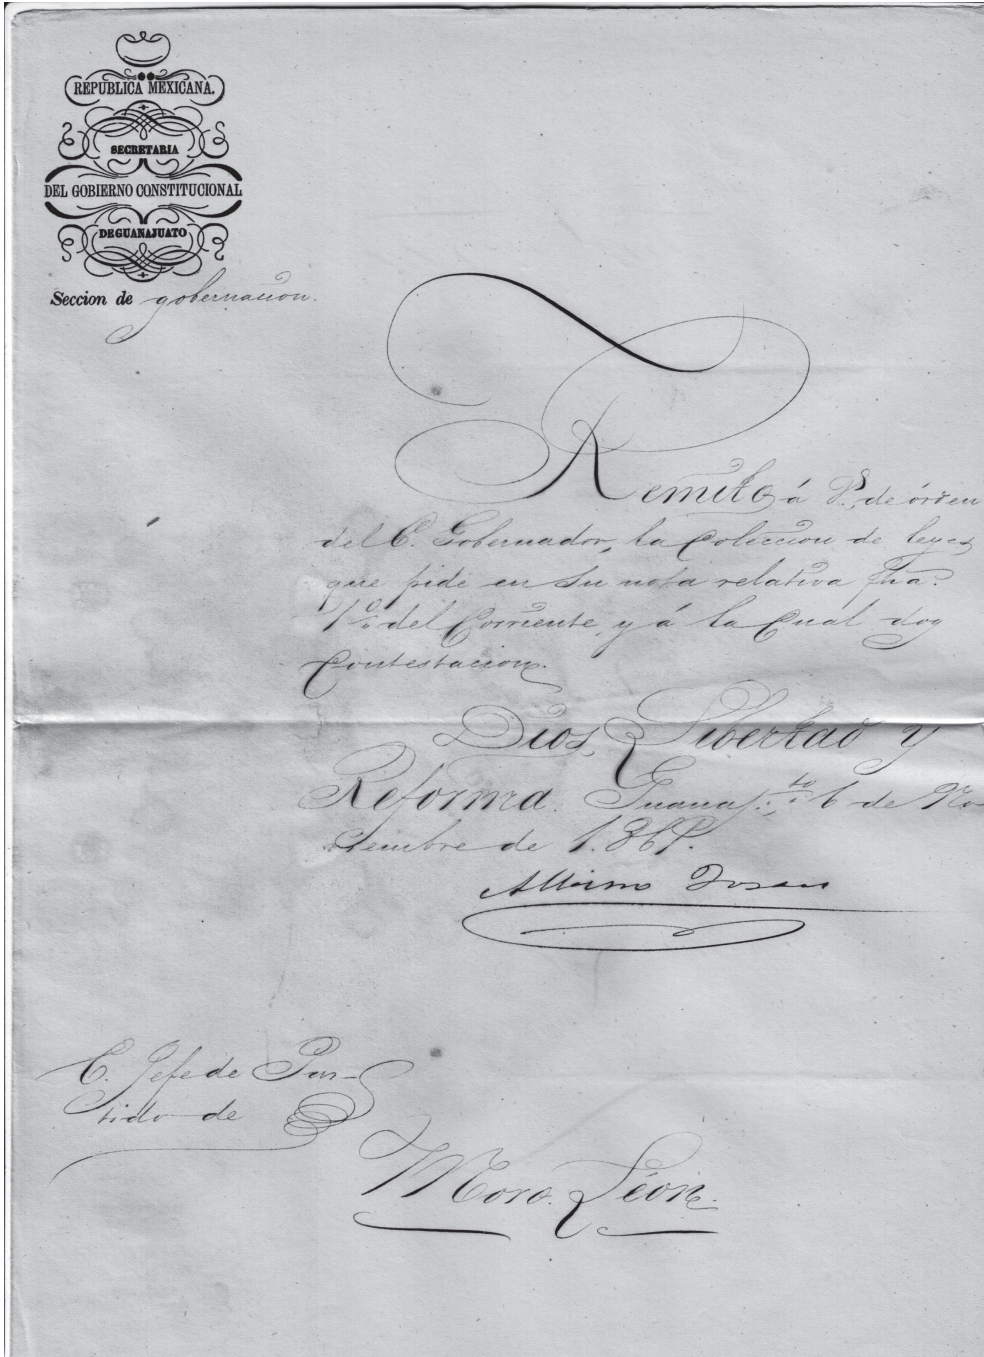 REPÚBLICA MEXICANA.
SECRETARIA
DEL GOBIERNO CONSTITUCIONAL
DE GUANAJUATO
Seccion de gobernacion.
Remito á V., de órden
del C. Gobernador, la Coleccion de leyes
que pide en su nota relativa fha.
1º del Corriente, y á la Cual doy
Contestacion.
Dios, Libertad y
Reforma. Guanaj.to 6 de No-
viembre de
C. Jefe de Par-
tido de
Moro Léon.